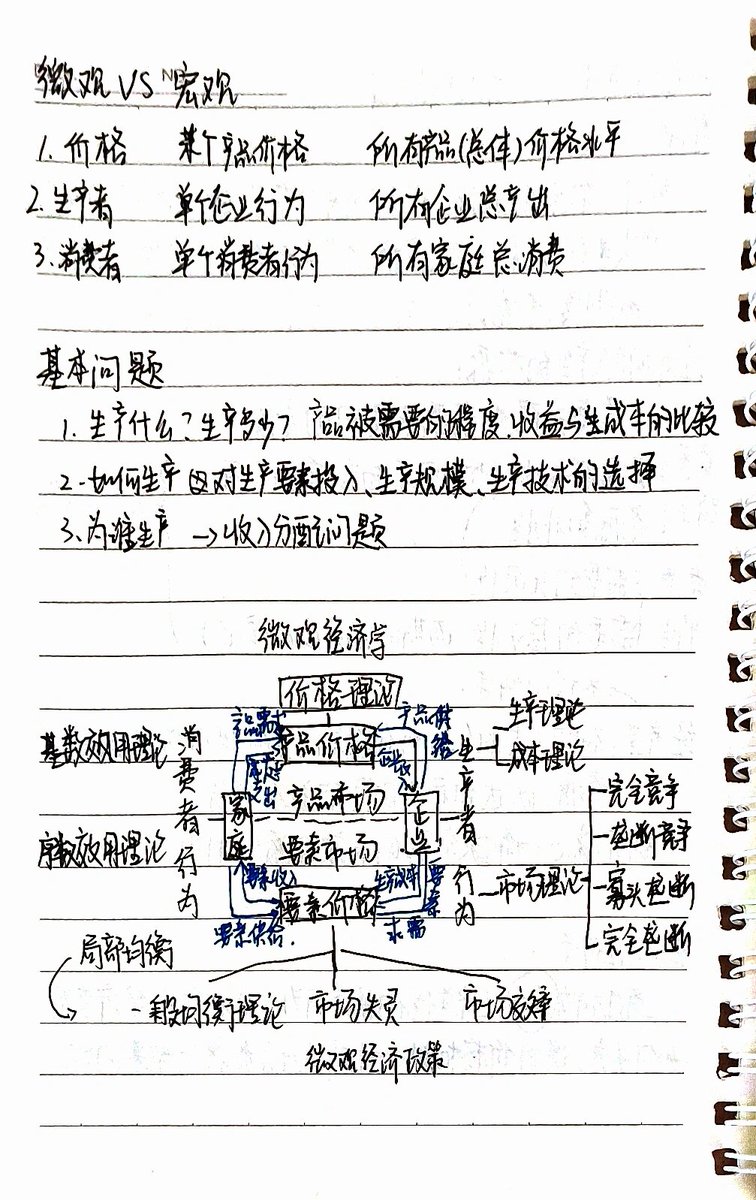 微观 VS 宏观
1. 价格 某个产品价格 所有产品(总体)价格水平
2. 生产者 单个企业行为 所有企业总产出
3. 消费者 单个消费者行为 所有家庭总消费
基本问题
1. 生产什么?生产多少? 产品被需要的程度、收益与生成本的比较
2. 如何生产 对生产要素投入、生产规模、生产技术的选择
3. 为谁生产 →收入分配问题
微观经济学
价格理论
产品需求
产品供给
产品价格
家庭支出
企业收入
生产理论
成本理论
基数效用理论
序数效用理论
消费者行为
家庭
产品市场
要素市场
企业
生产者行为
市场理论
完全竞争
垄断竞争
寡头垄断
完全垄断
要素收入
要素供给.
要素价格
生产成本
要素
需求
局部均衡
一般均衡理论 市场失灵 市场效率
微观经济政策